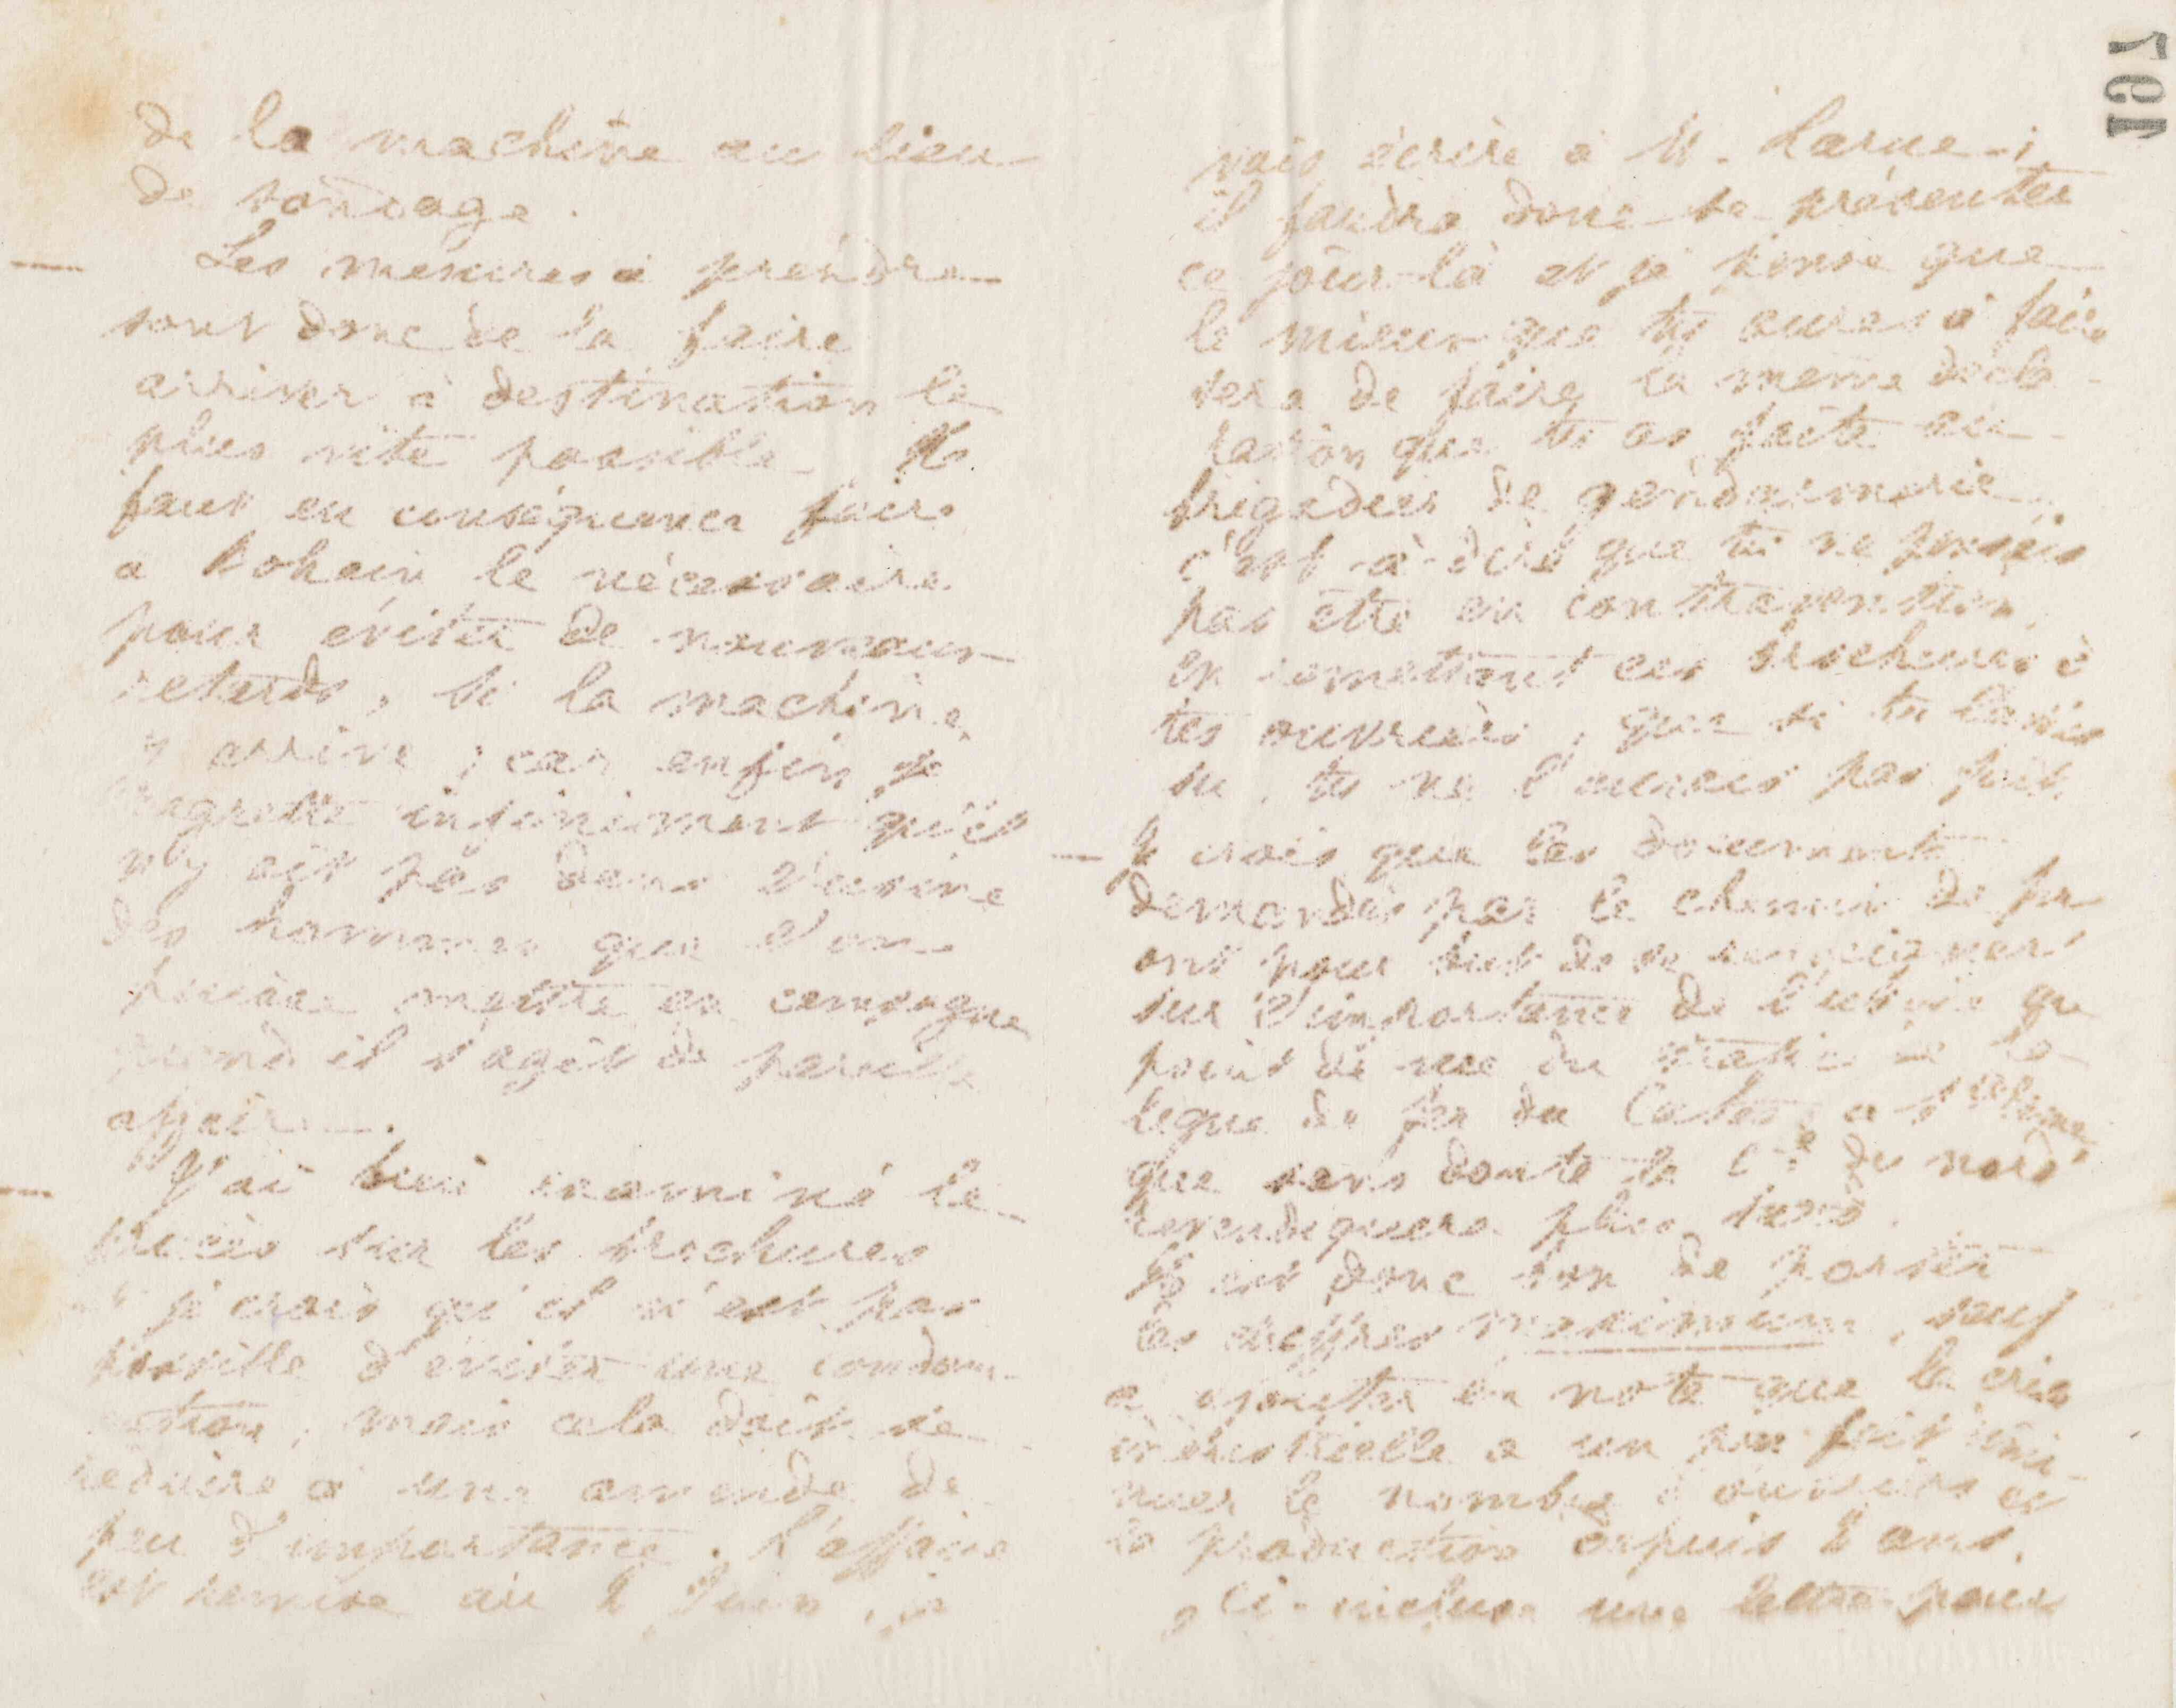 de la machine au lieu
de sondage.
Les mesures à prendre
sont donc de la faire
arriver à destination le
plus vite possible. Il
faut en conséquence faire
à Bohain le nécessaire
pour éviter de nouveaux
retards, si la machine
y arrive ; car enfin je
regrette infiniment qu'il
n'y ait pas dans l'usine
des hommes que l'on
puisse mettre en campagne
quand il s'agit de pareille
affaire.
J'ai bien examiné le
procès sur les brochures
et je crois qu'il n'est pas
possible d'éviter une condam-
nation, mais cela doit se
réduire à une amende de
peu d'importance. L'affaire
est remise au 2 Juin, je
vais écrire à M. Larue ;
il faudra donc te présenter
ce jour-là et je pense que
le mieux que tu auras à faire
sera de faire la même décla-
ration que tu as faite au
brigadier de gendarmerie,
c'est-à-dire que tu ne pensais
pas être en contravention
en remettant ces brochures à
tes ouvriers, que si tu l'avais
su, tu ne l'aurais pas fait.
Je crois que les documents
demandés par le chemin de fer
ont pour but de se renseigner
sur l'importance de l'usine au
point de vue du trafic de la
ligne de fer du Cateau à
que sans doute la Cie du nord
revendiquera plus tard.
Il est donc bon de porter
les chiffres maximum, sauf
à ajouter en note que la crise
industrielle a un peu fait dimi-
nuer le nombre d'ouvriers et
la production depuis 2 ans.
Ci-incluse une lettre pour
167